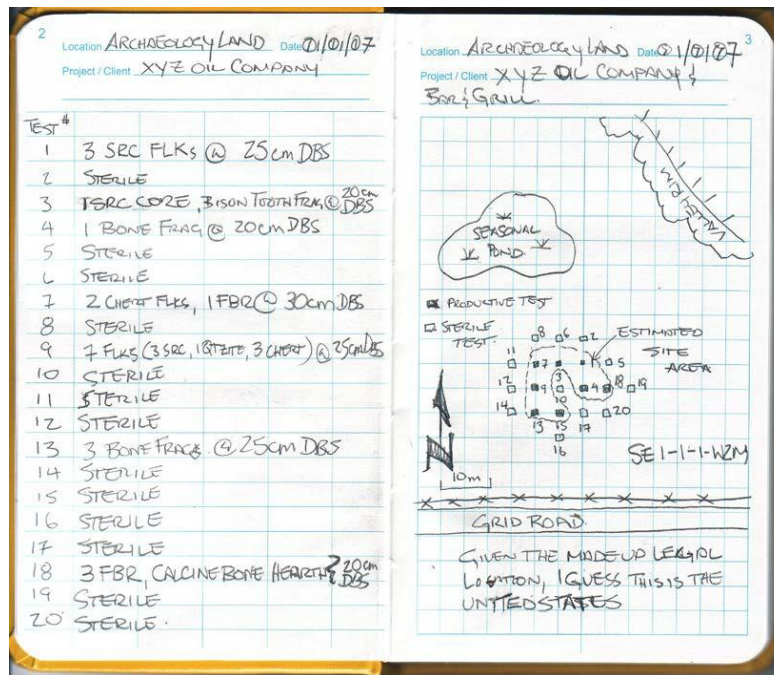 2
Location ARCHAEOLOGY LAND Date 01/01/07
Project / Client XYZ OIL COMPANY
TEST #
1 3 SRC FLKS @ 25cm DBS
2 STERILE
3 1 SRC CORE, BISON TOOTH FRAG @ 20cm DBS
4 1 BONE FRAG @ 20cm DBS
5 STERILE
6 STERILE
7 2 CHERT FLKS, 1 FBR @ 30cm DBS
8 STERILE
9 7 FLKS (3 SRC, 1 QTZITE, 3 CHERT) @ 25cm DBS
10 STERILE
11 STERILE
12 STERILE
13 3 BONE FRAGS @ 25cm DBS
14 STERILE
15 STERILE
16 STERILE
17 STERILE
18 3 FBR, CALCINE BONE HEARTH 20cm DBS
19 STERILE
20 STERILE.
3
Location ARCHAEOLOGY LAND Date 01/01/07
Project / Client XYZ OIL COMPANY &
BAR & GRILL.
VALLEY RIM
SEASONAL
POND
PRODUCTIVE TEST
STERILE
TEST.
ESTIMATED
SITE
AREA
8 6 2
11 7 1 5
12 9 3 4 18 19
14 10 20
13 15 17
16
SE 1-1-1-W2M
10m
GRID ROAD
GIVEN THE MADE UP LEGAL
LOCATION, I GUESS THIS IS THE
UNITED STATES